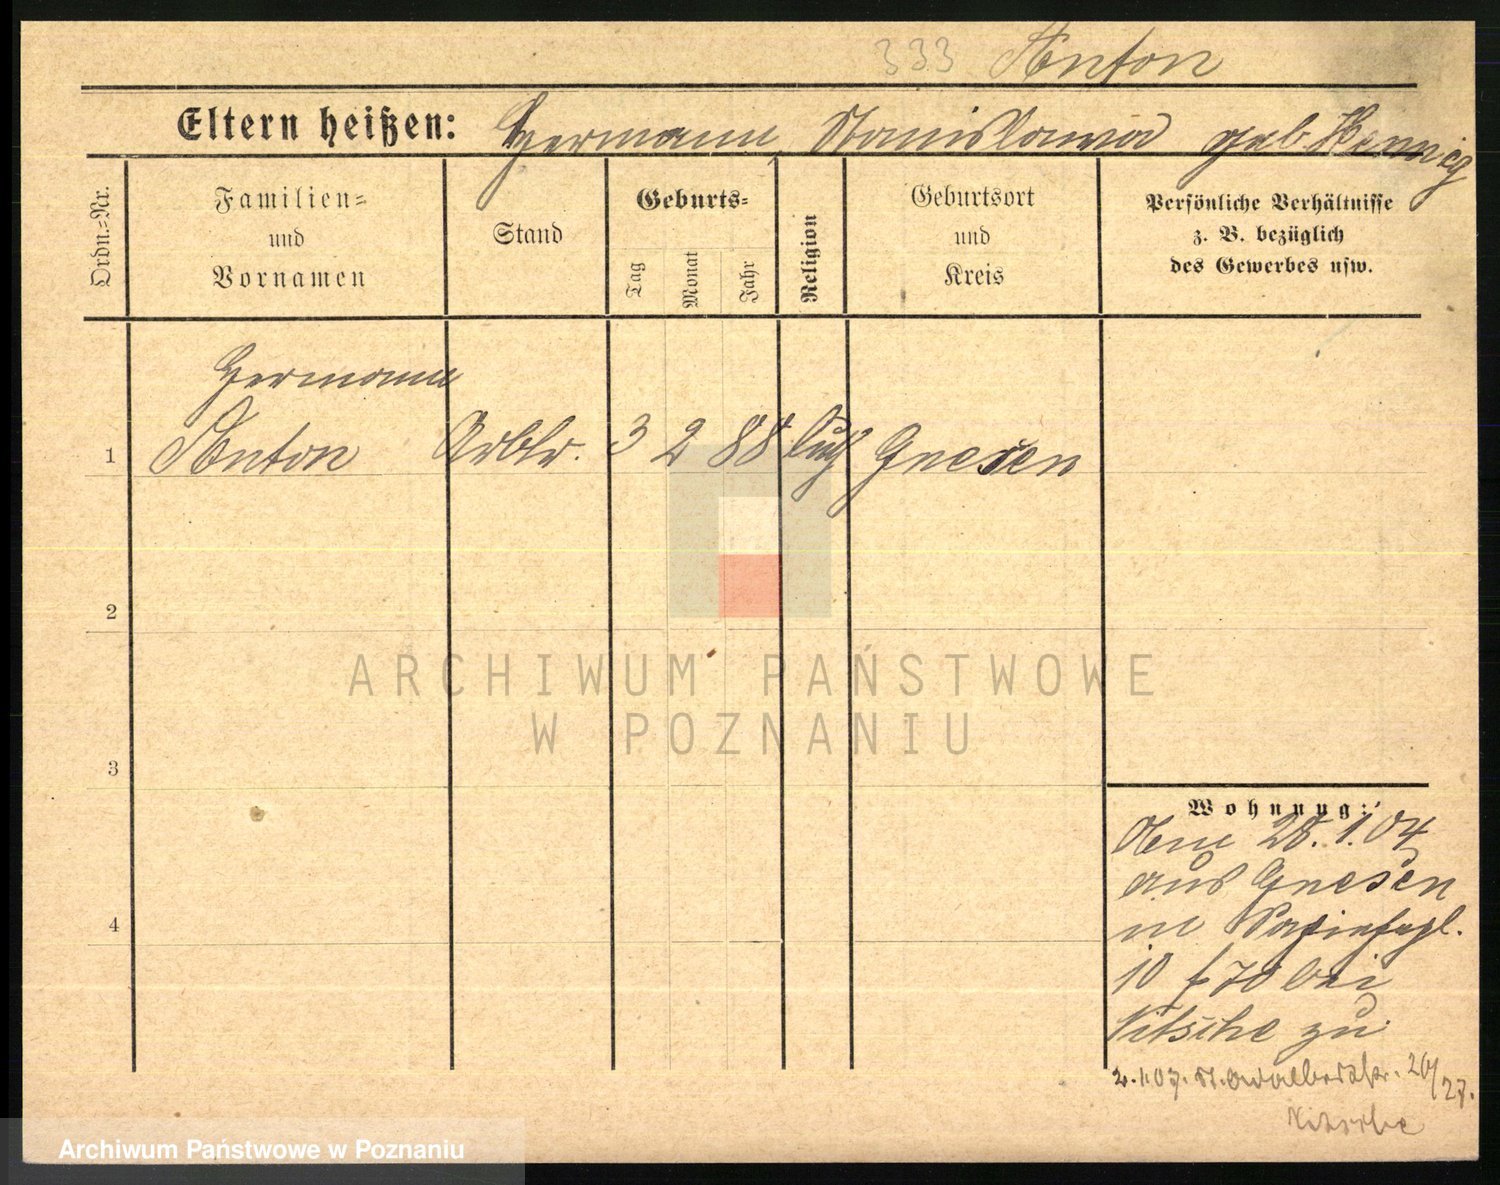 333 Anton
Eltern heißen: Hermann, Stanislawa geb. Hennig
Ordn.=Nr.
Familien=
und
Vornamen
Stand
Geburts=
Tag
Monat
Jahr
Religion
Geburtsort
und
Kreis
Persönliche Verhältnisse
z. B. bezüglich
des Gewerbes usw.
Hermann
1 Anton Arblr. 3 2 88 Gnesen
2
3
4
Wohnung:
28.1.04
aus Gnesen
in
10 bei
Nitsche zu
2.1.07. St. Adalbertstr. 26/27.
Nitsche
ARCHIWUM PAŃSTWOWE
W POZNANIU
Archiwum Państwowe w Poznaniu